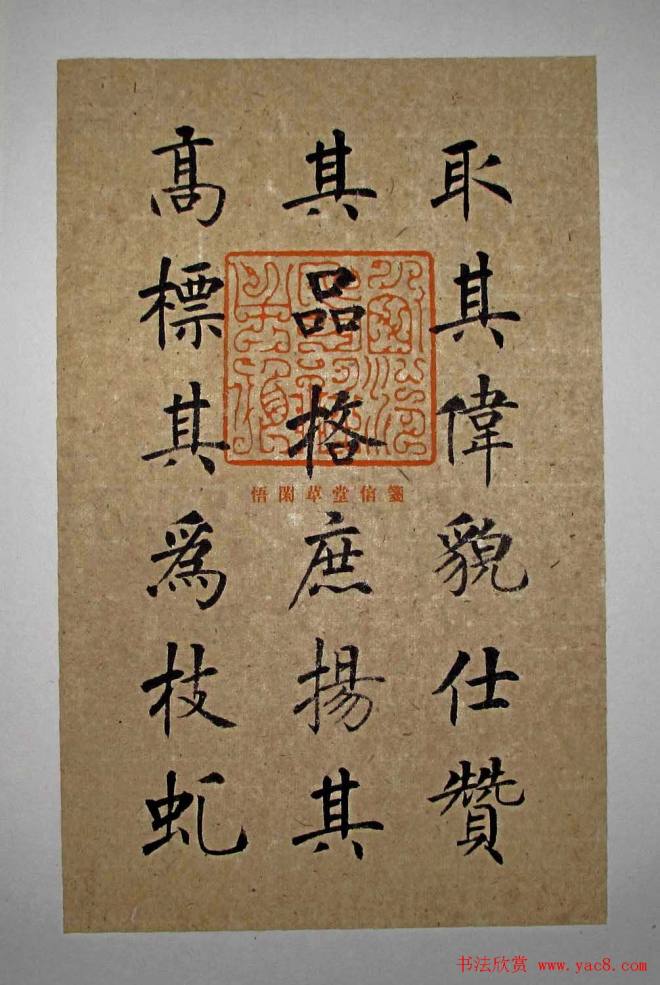 取其偉貌仕贊
其品格庶揚其
高標其爲枝虬
悟閑草堂信箋
书法欣赏 www.yac8.com